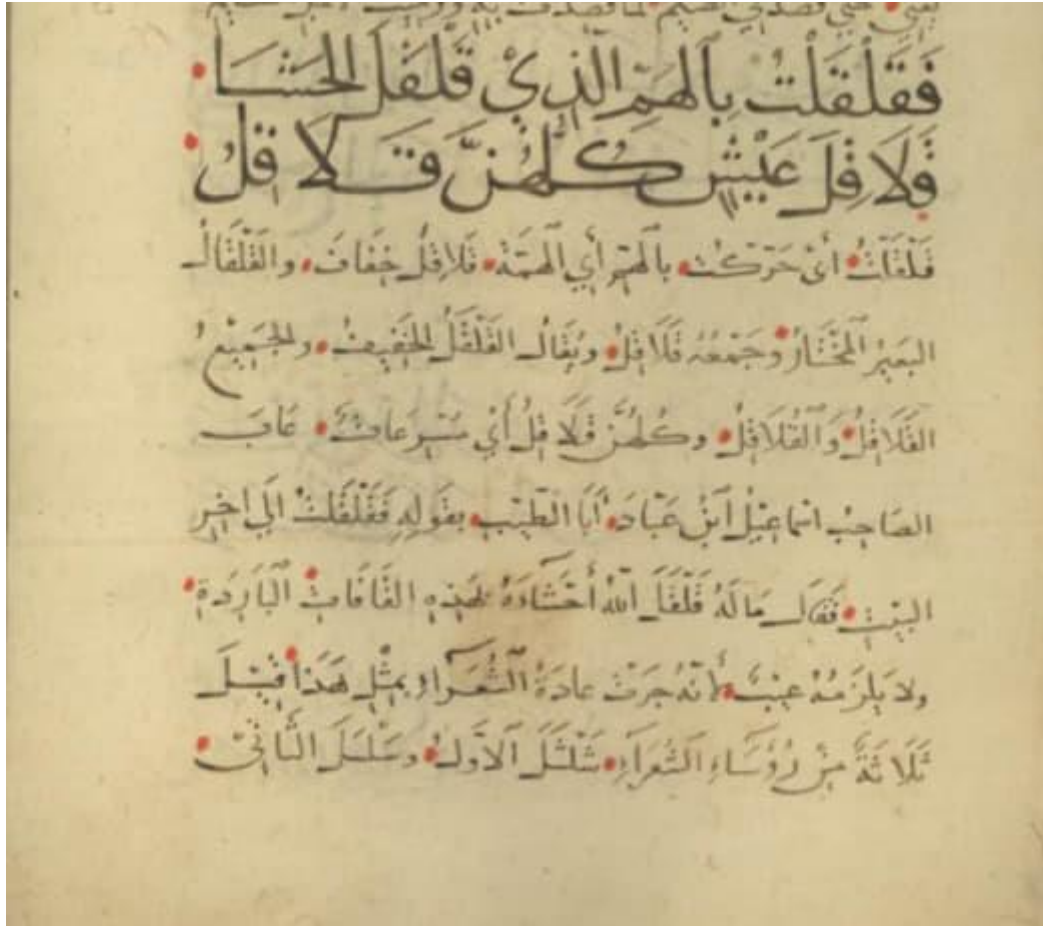 فَقَلْقَلْتُ بِالهَمِّ الَّذِيْ قَلْقَلَ الحَشَا
قَلَاقِلَ عَيْشٍ كُلُّهُنَّ قَلَاقِلُ
قَلْقَلْتُ أَيْ حَرَّكْتُ بِالهَمِّ أي الهِمَّة قَلَاقِلُ خِفَاف والقَلْقَالُ
البَعِيْر المُخْتَارُ وجَمْعُه قَلَاقِلُ ويُقَالُ القَلْقَلُ الخَفِيفُ والجَمِيْعُ
القَلَاقِلُ وَالقُلَاقِلُ وكلهُنَّ قَلَاقِلُ أَيْ سَرِعَاتٌ عَابَ
الصَاحِبُ اسماعِيْلُ ابْنُ عَبَّاد أَبَا الطَّيِّب بِقَولِهِ فَقَلْقَلْتُ الَى اخِرِ
البَيْتِ فقالَ مَالَهُ قَلْقَلَ اللّهُ أَحْشَاءَهُ بهذِهِ القَافَاتِ البَارِدَةِ
ولا يَلزَمُهُ عَيْبٌ لأنهُ جَرَتْ عادَةُ الشُّعَرَاءِ بِمِثْلِ هَذَا قِيْلَ
ثَلَاثَةٌ مِنْ رُؤَسَاءِ الشُعَرَاءِ شَلْشَلَ الأوّلُ وسَلْسَلَ الثَّانِيْ